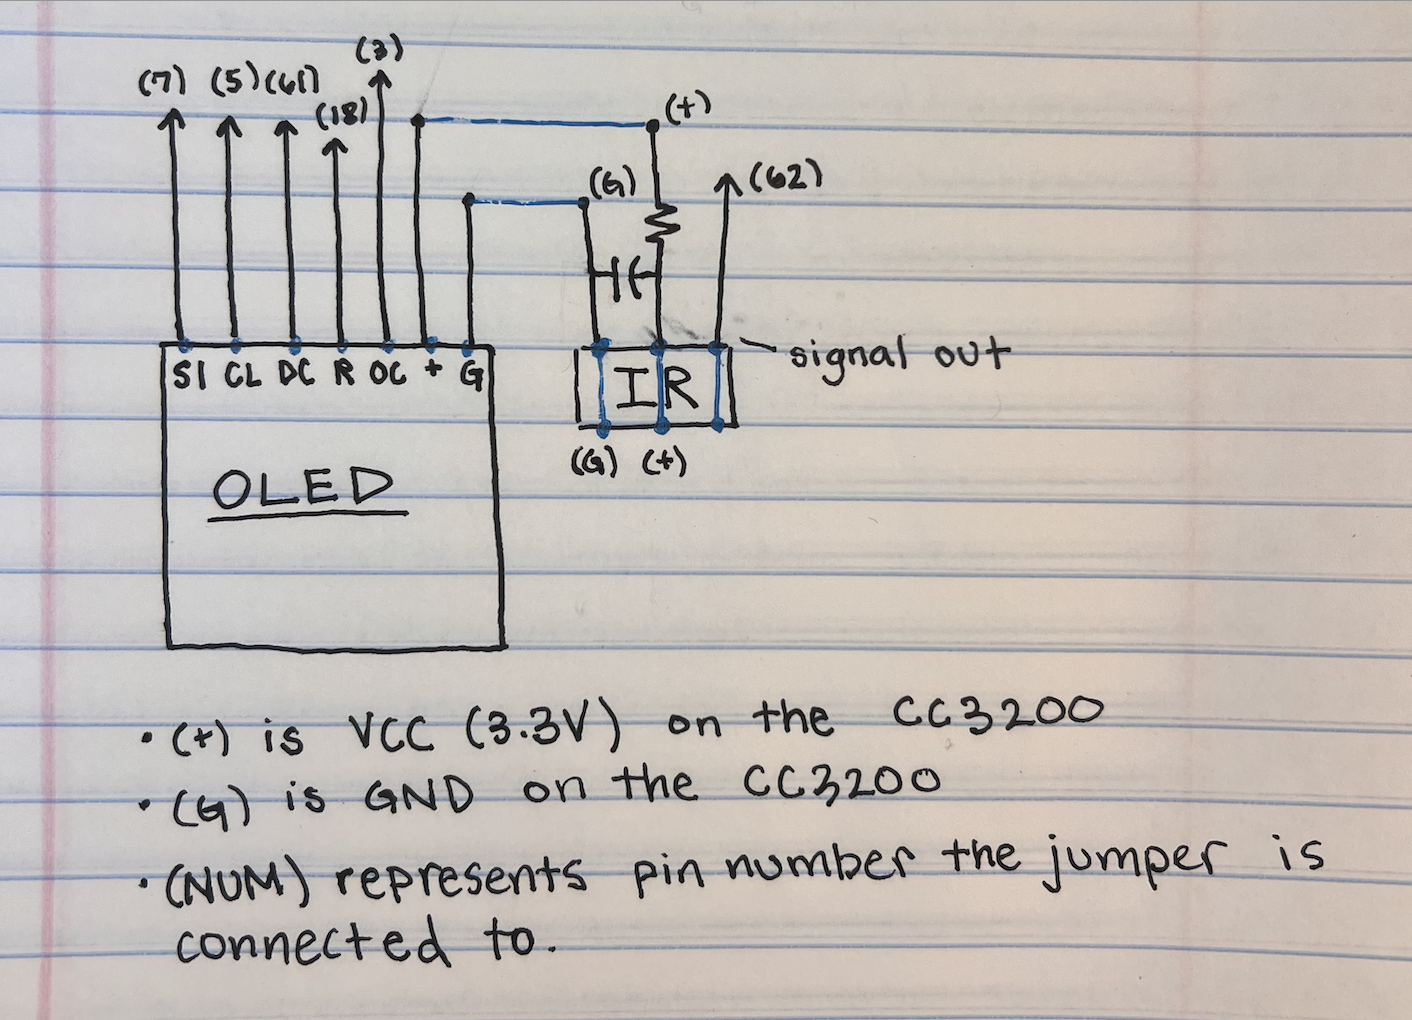 (3)
(7) (5) (61)
(18) (+)
(G) (62)
signal out
SI CL DC R OC + G
IR
(G) (+)
OLED
• (+) is VCC (3.3V) on the CC3200
• (G) is GND on the CC3200
• (NUM) represents pin number the jumper is
connected to.